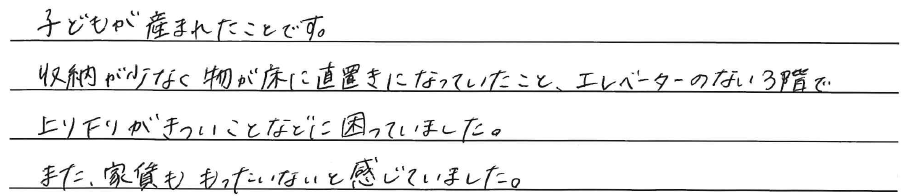 子どもが産まれたことです。
収納が少なく物が床に直置きになっていたこと、エレベーターのない3階で
上り下りがきついことなどに困っていました。
また、家賃ももったいないと感じていました。